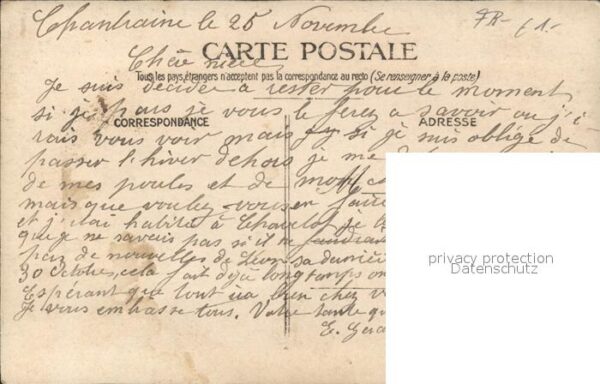 Chantraine le 25 Novembre
FR- 61-
Chère nièce
CARTE POSTALE
Tous les pays étrangers n'acceptent pas la correspondance au recto (Se renseigner à la poste)
Je suis décidée a rester pour le moment
si je pars je vous le ferez a savoir ou j'i
CORRESPONDANCE
ADRESSE
rais vous voir mais si je suis obligé de
passer l'hiver dehors je me
de mes poules et de mon
mais que voulez-vous en faire
et j'étai habitué à Chavelot je
que je ne savais pas si il
pas de nouvelles de Léon sa
30 octobre, cela fait déjà longtemps on
Espérant que tout va bien chez v
Je vous embrasse tous. Votre tante qu
E. Gera
privacy protection
Datenschutz